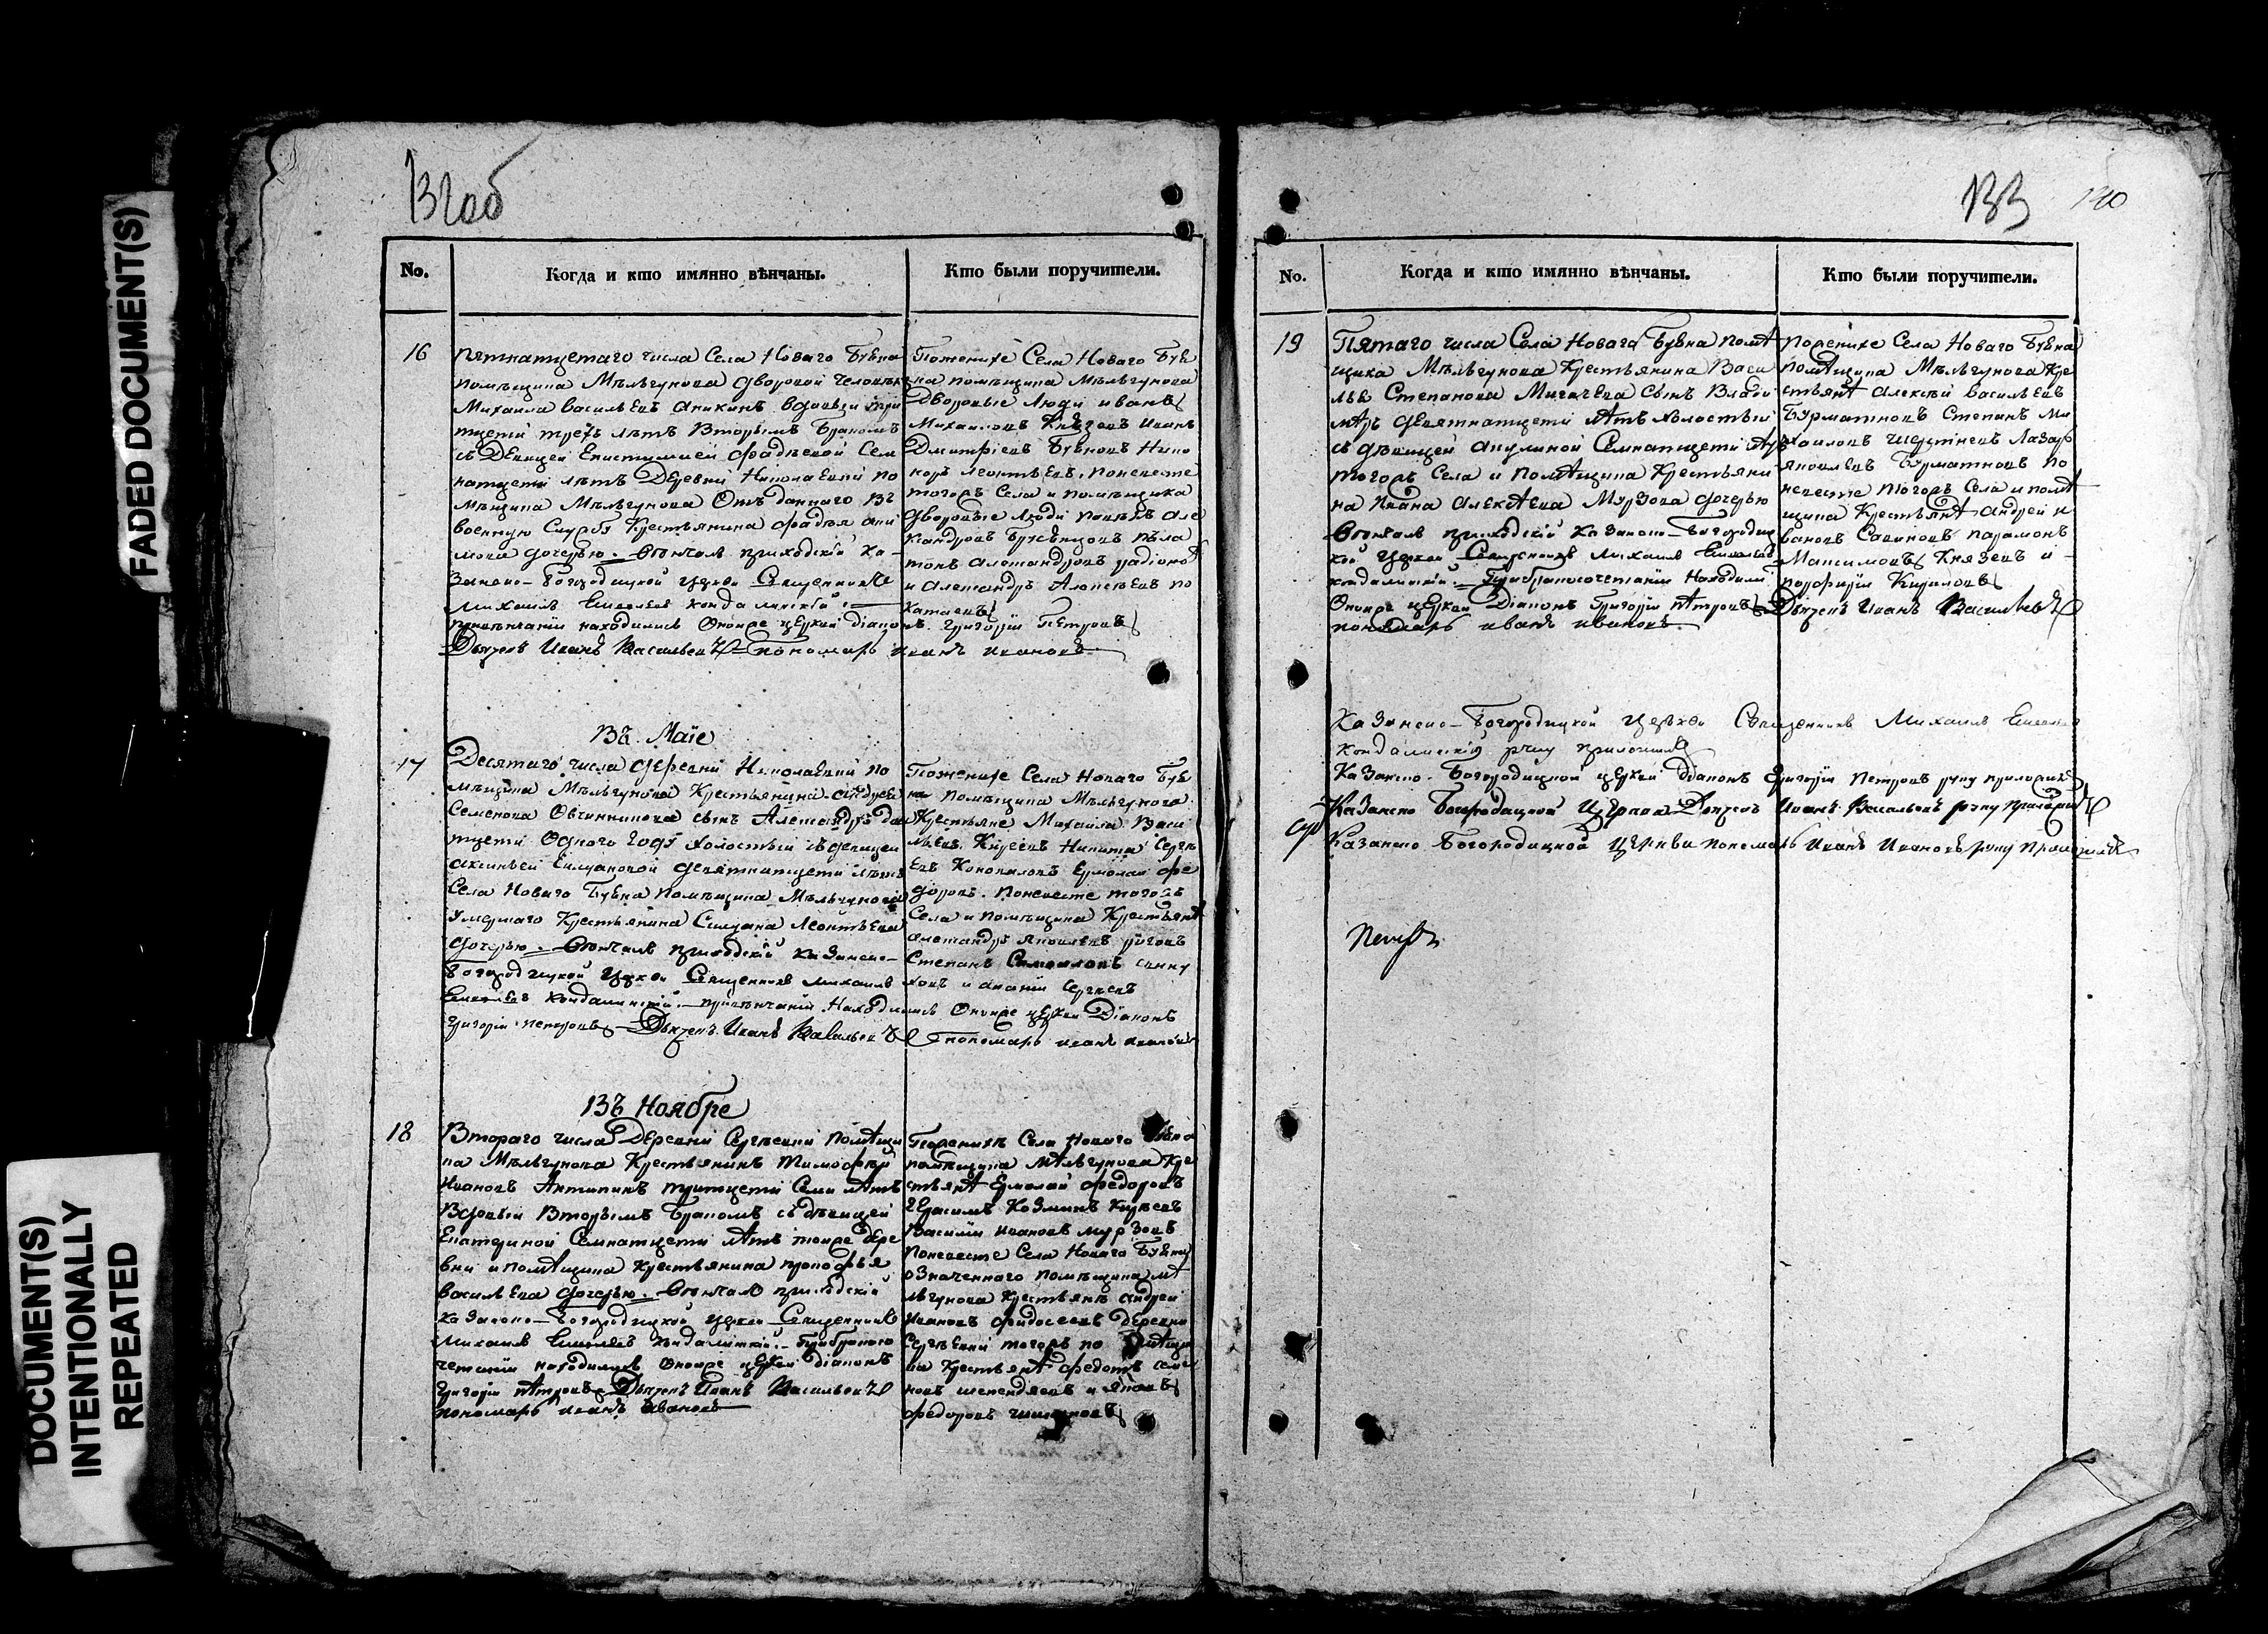 FADED DOCUMENT(S)
DOCUMENT(S)
INTENTIONALLY
REPEATED
No.
Когда и кто имянно вѣнчаны.
Кто были поручители.
16
Пятнатцетаго числа Села Новаго Буяна
помѣщика Мѣльгунова дворовой человѣкъ
Михаила Васильевъ Аникинъ вдовый три
тцети трехъ лѣтъ вторымъ бракомъ
съ Девицей Фадѣевой Сем
натцети лѣтъ Деревни Николаевки по
мѣщика Мѣльгунова Отъ даннаго въ
военную Службу Крестьянина Фадѣя
дочерью. Вѣнчалъ приходскій Ка-
занско-Богородицкой церкви Священникъ
Михаилъ Кондалинскій.
привѣнчаніи находились Оноже церкви діаконъ Григорій Петровъ
Дьячекъ Иванъ Васильевъ пономарь Иванъ Ивановъ
Поженихе Села Новаго Буя
на помѣщика Мѣльгунова
Дворовые Люди Иванъ
Михаиловъ Князевъ Иванъ
Дмитріевъ Буяновъ Ника
норъ Леонтьевъ, поневесте
тогожъ Села и помѣщика
Дворовые Люди Але
ксандровъ
тонъ Александровъ
и Александръ Алексѣевъ
Въ Маіе
17
Десятаго числа Деревни Николаевки по
мѣщика Мѣльгунова Крестьянина Андрея
Семенова Овчинникова сынъ Александръ два
тцети одного году холостый съ девицей
девятнатцети лѣтъ
Села Новаго Буяна помѣщика Мѣльгунова
умершаго Крестьянина Леонтьева
дочерью. Вѣнчалъ приходскій Казанско-
Богородицкой церкви Священникъ Михаилъ
Кондалинскій. привѣнчаніи Находились Оноже церкви Діаконъ
Григорій Петровъ Дьячекъ Иванъ Васильевъ пономарь Иванъ Ивановъ
Поженихе Села Новаго Буя
на помѣщика Мѣльгунова
Крестьяне Михаила Васи
льевъ Киреевъ Никита Сергѣ
евъ Коноваловъ Ермолай Фе
доровъ. Поневесте тогожъ
Села и помѣщика Крестьянѣ
Александръ Яковлевъ
Степанъ
и Ананій Сергеевъ
Въ Ноябре
18
Втораго числа Деревни Сергѣевки помѣщи
ка Мѣльгунова Крестьянинъ Тимофѣй
Ивановъ Антипинъ тритцети Семи лѣтъ
вдовый вторымъ бракомъ съ дѣвицей
Екатериной Семнатцети лѣтъ тоиже Дере
вни и помѣщика Крестьянина Прокофья
Васильева дочерью. Вѣнчалъ приходскій
Казанско-Богородицкой церкви Священникъ
Михаилъ Кондалинскій. Прибракосо
четаніи находились Оноже церкви діаконъ
Григорій Петровъ Дьячекъ Иванъ Васильевъ
пономарь Иванъ Ивановъ
Поженихѣ Села Новаго Буяна
помѣщика Мѣльгунова Кре
стьянѣ Ермолай Федоровъ
Герасимъ Козминъ Киреевъ
Василій Ивановъ Мурзовъ
Поневесте Села Новаго Буяна
означеннаго помѣщика Мѣ
льгунова Крестьянѣ Андрей
Ивановъ Фидосеевъ Деревни
Сергѣевки тогожъ помѣщи
ка Крестьянѣ Федотъ
и Яковъ
Федоровъ
No.
Когда и кто имянно вѣнчаны.
Кто были поручители.
19
Пятаго числа Села Новаго Буяна помѣ
щика Мѣльгунова Крестьянина Васи
лья Степанова Мигачева сынъ Влади
мѣръ девятнатцети лѣтъ холостый
съ дѣвицей Акулиной Семнатцети лѣтъ
тогожъ Села и помѣщика Крестьяни
на Ивана Алексѣева Мурзова дочерью
Вѣнчалъ приходскій Казанско-Богородиц
кой церкви Священникъ Михаилъ
Кондалинскій. Прибракосочетаніи Находили
Оноже церкви Діаконъ Григорій Петровъ Дьячекъ Иванъ Васильевъ
пономарь Иванъ Ивановъ
Поженихе Села Новаго Буяна
помѣщика Мѣльгунова Кре
стьянѣ Алексѣй Васильевъ
Бурматновъ Степанъ Ми
хаиловъ Лазарь
Яковлевъ Бурматновъ По
невесте тогожъ Села и помѣ
щика Крестьянѣ Андрей И
вановъ Савиновъ Парамонъ
Максимовъ Князевъ и
Порфирій Кириловъ
Казанско-Богородицкой церкви Священникъ Михаилъ
Кондалинскій руку приложилъ
Казанско-Богородицкой церкви діаконъ Григорій Петровъ руку приложилъ
Казанско Богородицкой Церкви Дьячекъ Иванъ Васильевъ руку приложилъ
Казанско Богородицкой церкви пономарь Иванъ Ивановъ руку приложилъ